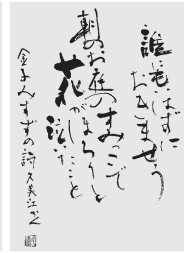 誰にもいはずに
おきませう
朝のお庭のすみっこで
花がほろりと
泣いたこと
金子みすずの詩 久美江書